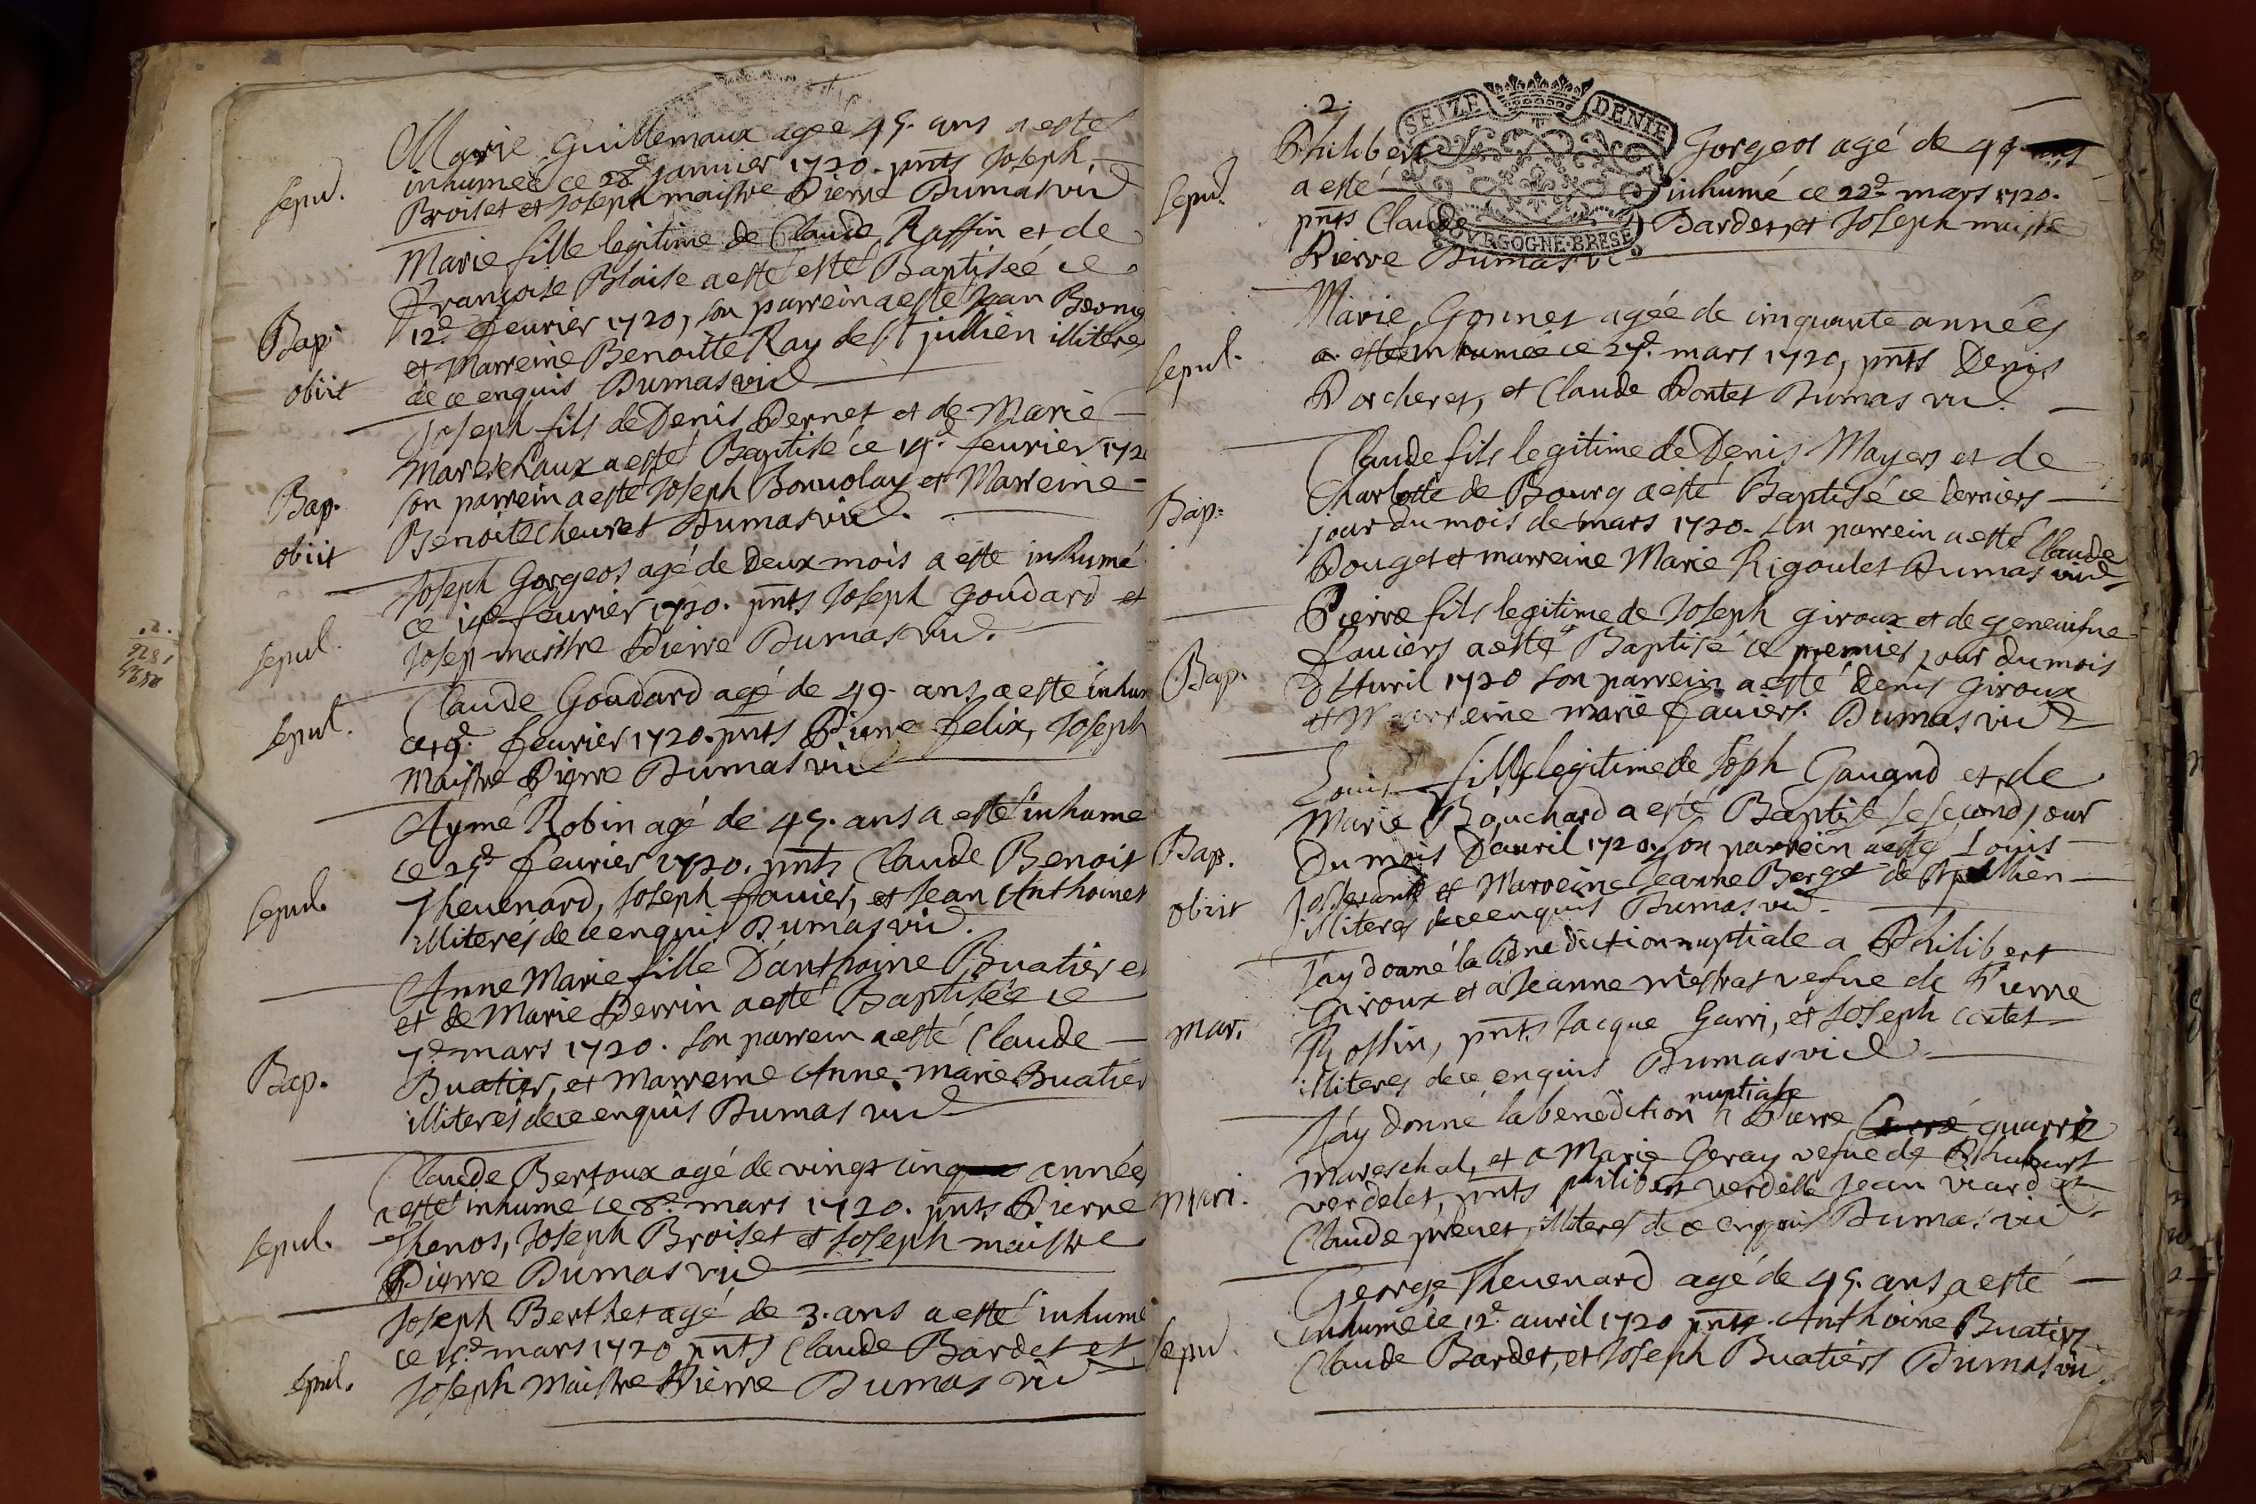 Marie Guillemaux agée 45. ans a esté
sepul. inhumeé ce 28e janvier 1720. pnts Joseph
Broiset et Joseph maistre Pierre Dumas vic
Marie fille legitime de Claude Raffin et de
Françoise Blaise a esté esté Baptiseé ce
Bap. 12e fevrier 1720, son parrein a esté Jean
et Marreine Benoitte Ray de st jullien illiteres
obiit de ce enquis Dumas vic
Joseph fils de Denis Pernet et de Marie
Mareschaux a esté Baptisé ce 14e fevrier 172
Bap. son parrein a esté Joseph Bonvolay et Marreine
obiit Benoite Chevret Dumas vic.
Joseph Gorgeos agé de Deux mois a esté inhumé
ce fevrier 1720. pnts Joseph Goudard et
sepul. Josep maistre Pierre Dumas vic.
Claude Goudard agé de 49. ans a esté inhum
sepul. ce 19e fevrier 1720. pnts Pierre felix, Joseph
Maistre Pierre Dumas vic
Aymé Robin agé de 45. ans a esté inhume
ce 25e fevrier 1720. pnts Claude Benoit
sepul. Thevenard, Joseph favier, et Jean Anthoinet
illiteres de ce enquis Dumas vic.
Anne Marie fille D'anthoine Buatier et
et de Marie Perrin a esté Baptiseé ce
7e mars 1720. son parrein a esté Claude
Bap. Buatier, et Marreine Anne Marie Buatier
illiterés de ce enquis Dumas vic
Claude Bertoux agé de vingt cinq année
a esté inhumé ce 8e mars 1720. pnts Pierre
sepul. Thenos, Joseph Broiset et Joseph maistre
Pierre Dumas vic
Joseph Berthet agé de 3. ans a esté inhumé
ce 15e mars 1720 pnts Claude Bardet et
sepul. Joseph Maistre Pierre Dumas vic
.2.
SEIZE DENIE
Philibert Gorgeos agé de 45
sepul. a esté inhumé ce 22e mars 1720.
pnts Claude Bardet, et Joseph maistre
BOVRGOGNE·BRESE
Pierre Dumas vi
Marie Gonnet agée de cinquante années
sepul. a esté inhumée ce 27e. mars 1720, pnts Denis
Porcheret, et Claude Pontet Dumas vic.
Claude fils legitime de Denis Mayers et de
Bap. Charlotte de Bourg a esté Baptisé ce Derniers
jour du mois de mars 1720. son parrein a esté Claude
Pouget et marreine Marie Rigoulet Dumas vic
Pierre fils legitime de Joseph Giroux et de genevifve
Bap. faviers a esté Baptisé ce premier jour du mois
D'Avril 1720 son parrein a esté Denis Giroux
et Marreine marie faviers. Dumas vic
Louis fille legitime de Joseph Gavand et de
Marie Bouchard a esté Baptisé le second jour
Bap. Du mois D'avril 1720. son parrein a esté Louis
obiit Josserand et Marreine Jeanne Berget de st jullien
illiteres de ce enquis Dumas vic.
J'ay donné la Benediction nuptiale a Philibert
Giroux et a Jeanne mestras vefve de Pierre
mar. Rossin, pnts Jacque Garri, et Joseph contet
illiteres de ce enquis Dumas vic
J'ay Donné la benediction nuptiale a Pierre quarré
mareschal, et a Marie Geray vefve de Philibert
mari. verdelet, pnts philibert verdelle Jean viard et
Claude prevet, illiteres de ce enquis Dumas vic
George Thevenard agé de 45. ans a esté
sepul. inhumé ce 12e avril 1720 pnts Anthoine Buatier
Claude Bardet, et Joseph Buatiers Dumas vic